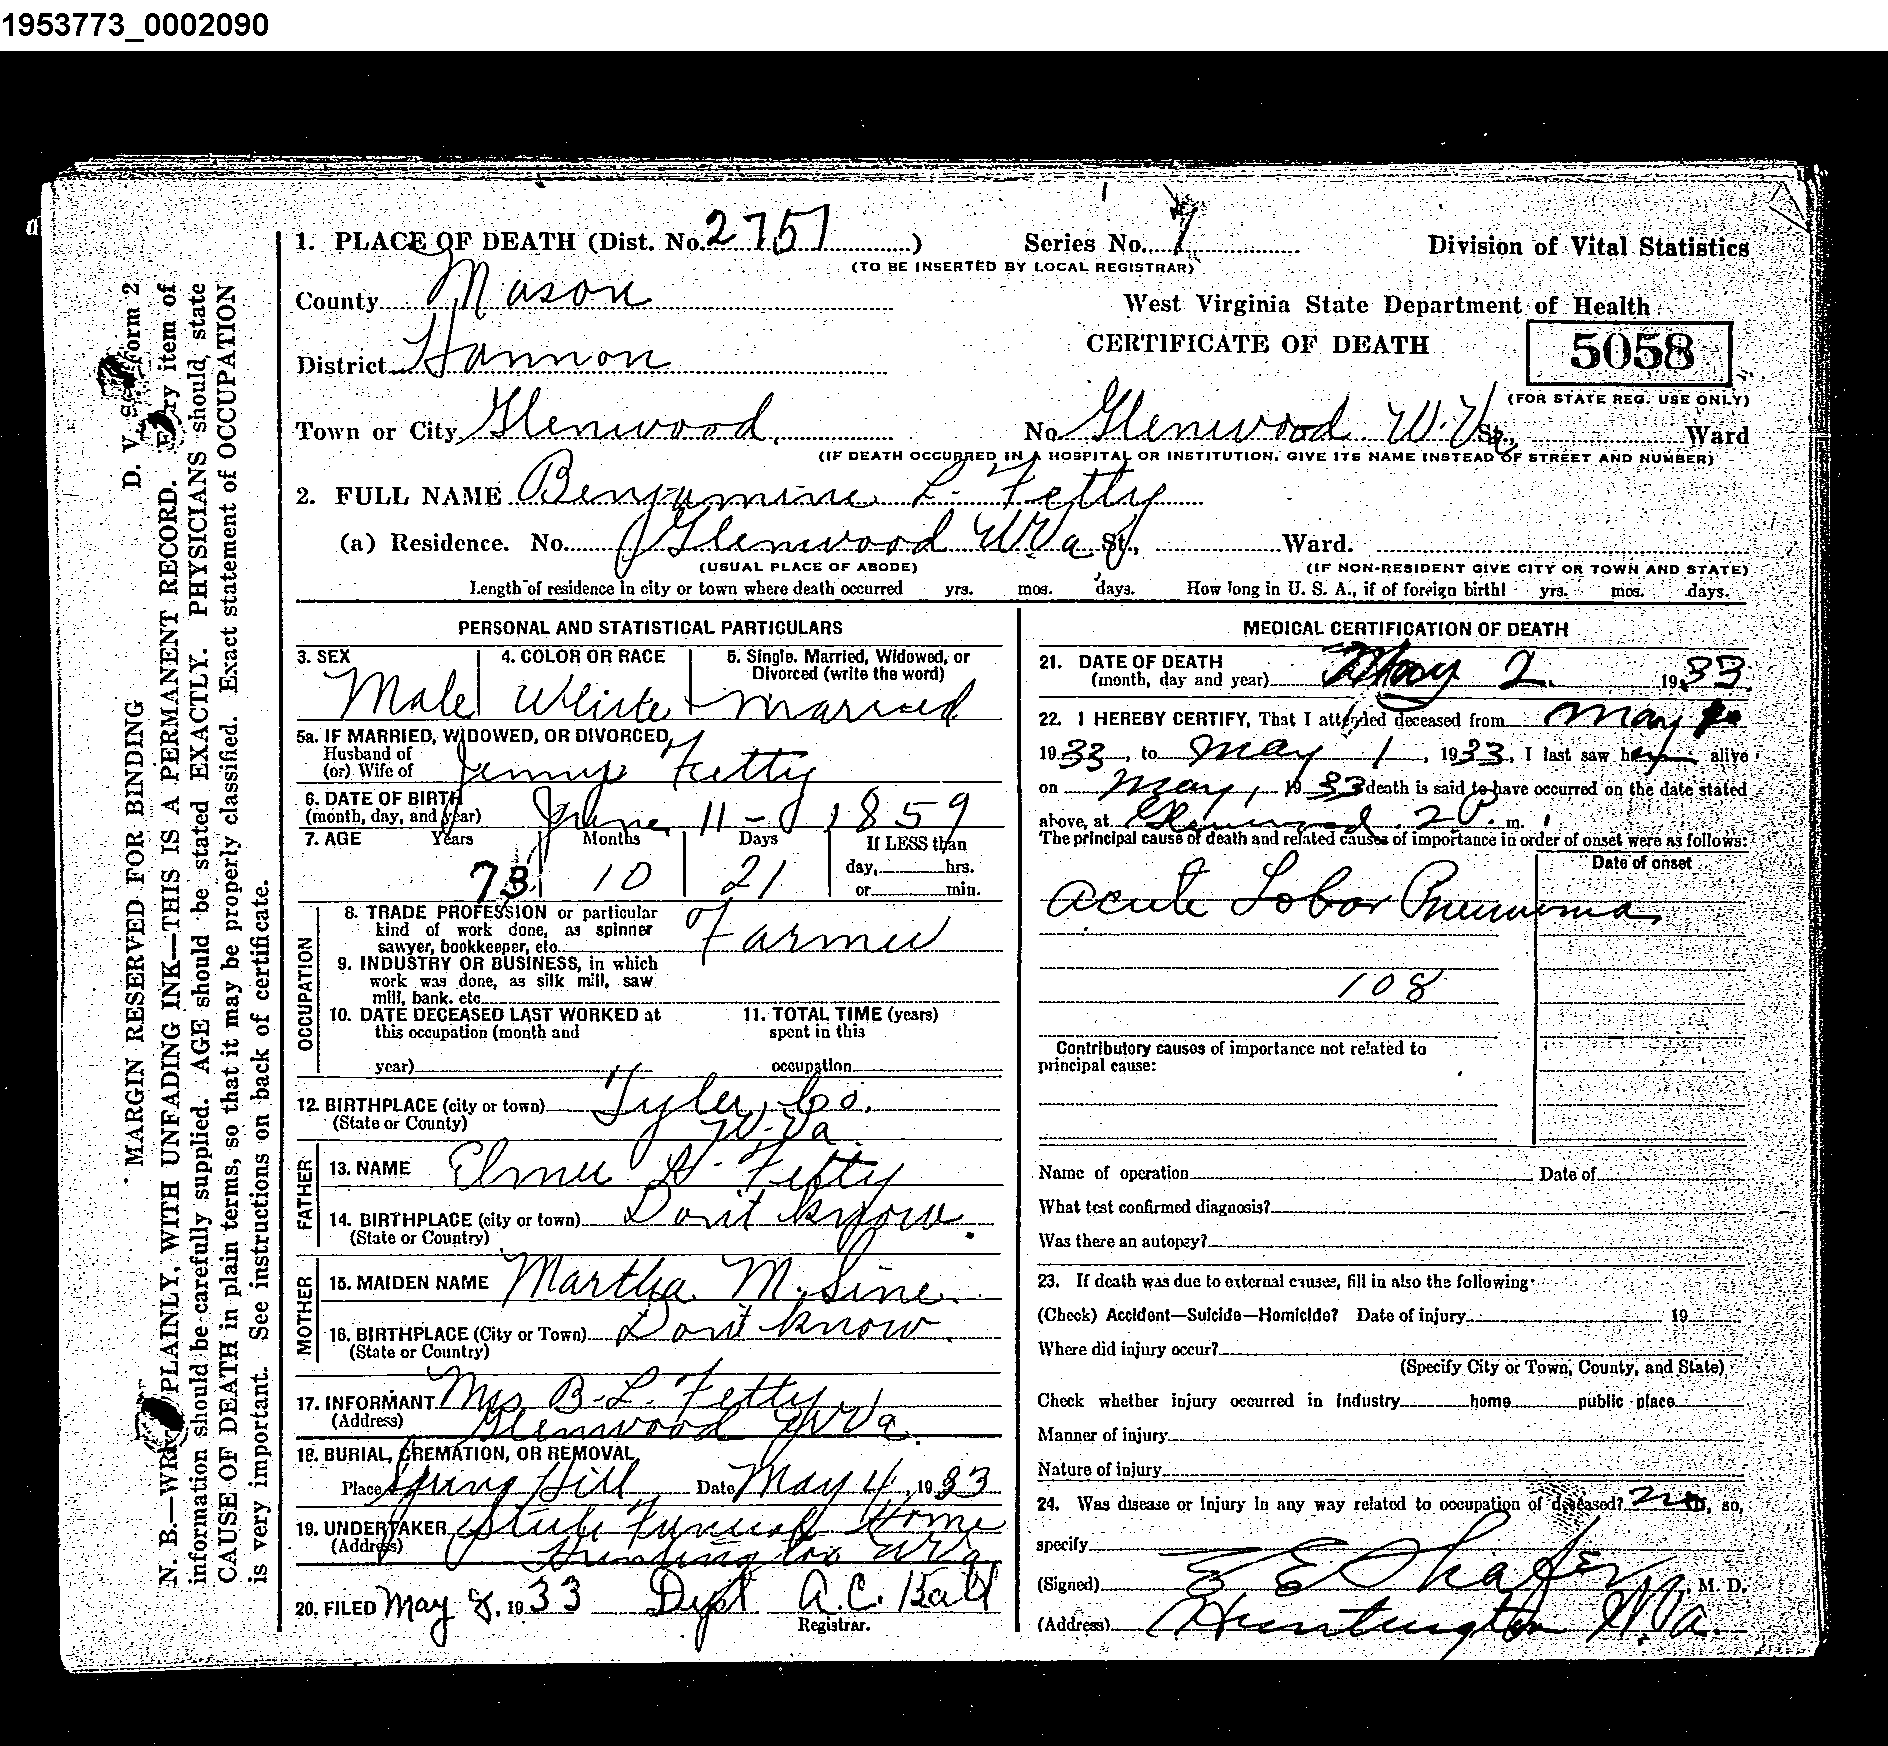 1953773_0002090
1. PLACE OF DEATH (Dist. No. 2757 ) Series No. 7 Division of Vital Statistics
(TO BE INSERTED BY LOCAL REGISTRAR)
County Mason West Virginia State Department of Health
District Hannon CERTIFICATE OF DEATH 5058
(FOR STATE REG. USE ONLY)
Town or City Glenwood, No. Glenwood W.Va St., Ward
(IF DEATH OCCURRED IN A HOSPITAL OR INSTITUTION, GIVE ITS NAME INSTEAD OF STREET AND NUMBER)
2. FULL NAME Benjamine L. Fetty
(a) Residence. No. Glenwood W Va St., Ward.
(USUAL PLACE OF ABODE) (IF NON-RESIDENT GIVE CITY OR TOWN AND STATE)
Length of residence in city or town where death occurred yrs. mos. days. How long in U. S. A., if of foreign birth! yrs. mos. days.
PERSONAL AND STATISTICAL PARTICULARS
3. SEX 4. COLOR OR RACE 5. Single, Married, Widowed, or
Divorced (write the word)
Male White Married
5a. IF MARRIED, WIDOWED, OR DIVORCED
Husband of
(or) Wife of Fetty
6. DATE OF BIRTH
(month, day, and year) June 11 - 1859
7. AGE Years Months Days If LESS than
73 10 21 day, hrs.
or min.
OCCUPATION
8. TRADE PROFESSION or particular
kind of work done, as spinner
sawyer, bookkeeper, etc. Farmer
9. INDUSTRY OR BUSINESS, in which
work was done, as silk mill, saw
mill, bank. etc
10. DATE DECEASED LAST WORKED at 11. TOTAL TIME (years)
this occupation (month and spent in this
year) occupation
12. BIRTHPLACE (city or town) Tyler, Co.
(State or County) W. Va
FATHER
13. NAME Elmer Fetty
14. BIRTHPLACE (city or town) Don't know.
(State or Country)
MOTHER
15. MAIDEN NAME Martha M. Sine
16. BIRTHPLACE (City or Town) Don't know.
(State or Country)
17. INFORMANT Mrs B. L. Fetty
(Address) Glenwood W Va.
18. BURIAL, CREMATION, OR REMOVAL
Place Spring Hill Date May 4, 1933
19. UNDERTAKER Funeral Home
(Address) Huntington W Va
20. FILED May 8, 1933 Dept A.C. Ball
Registrar.
MEDICAL CERTIFICATION OF DEATH
21. DATE OF DEATH
(month, day and year) May 2. 1933.
22. I HEREBY CERTIFY, That I attended deceased from May
1933, to May 1, 1933, I last saw h alive
on May, 1933 death is said to have occurred on the date stated
above, at Glenwood. 2 P. m.
The principal cause of death and related causes of importance in order of onset were as follows:
Date of onset
Acute Lobar Pneumonia
108
Contributory causes of importance not related to
principal cause:
Name of operation Date of
What test confirmed diagnosis?
Was there an autopsy?
23. If death was due to external causes, fill in also the following:
(Check) Accident—Suicide—Homicide? Date of injury 19
Where did injury occur?
(Specify City or Town, County, and State)
Check whether injury occurred in industry home public place
Manner of injury
Nature of injury
24. Was disease or injury in any way related to occupation of deceased? no so,
specify
(Signed) E E Shafer M. D.
(Address) Huntington W.Va.
D. V. S. Form 2
MARGIN RESERVED FOR BINDING
N. B.—WRITE PLAINLY, WITH UNFADING INK—THIS IS A PERMANENT RECORD. Every item of
information should be carefully supplied. AGE should be stated EXACTLY. PHYSICIANS should state
CAUSE OF DEATH in plain terms, so that it may be properly classified. Exact statement of OCCUPATION
is very important. See instructions on back of certificate.